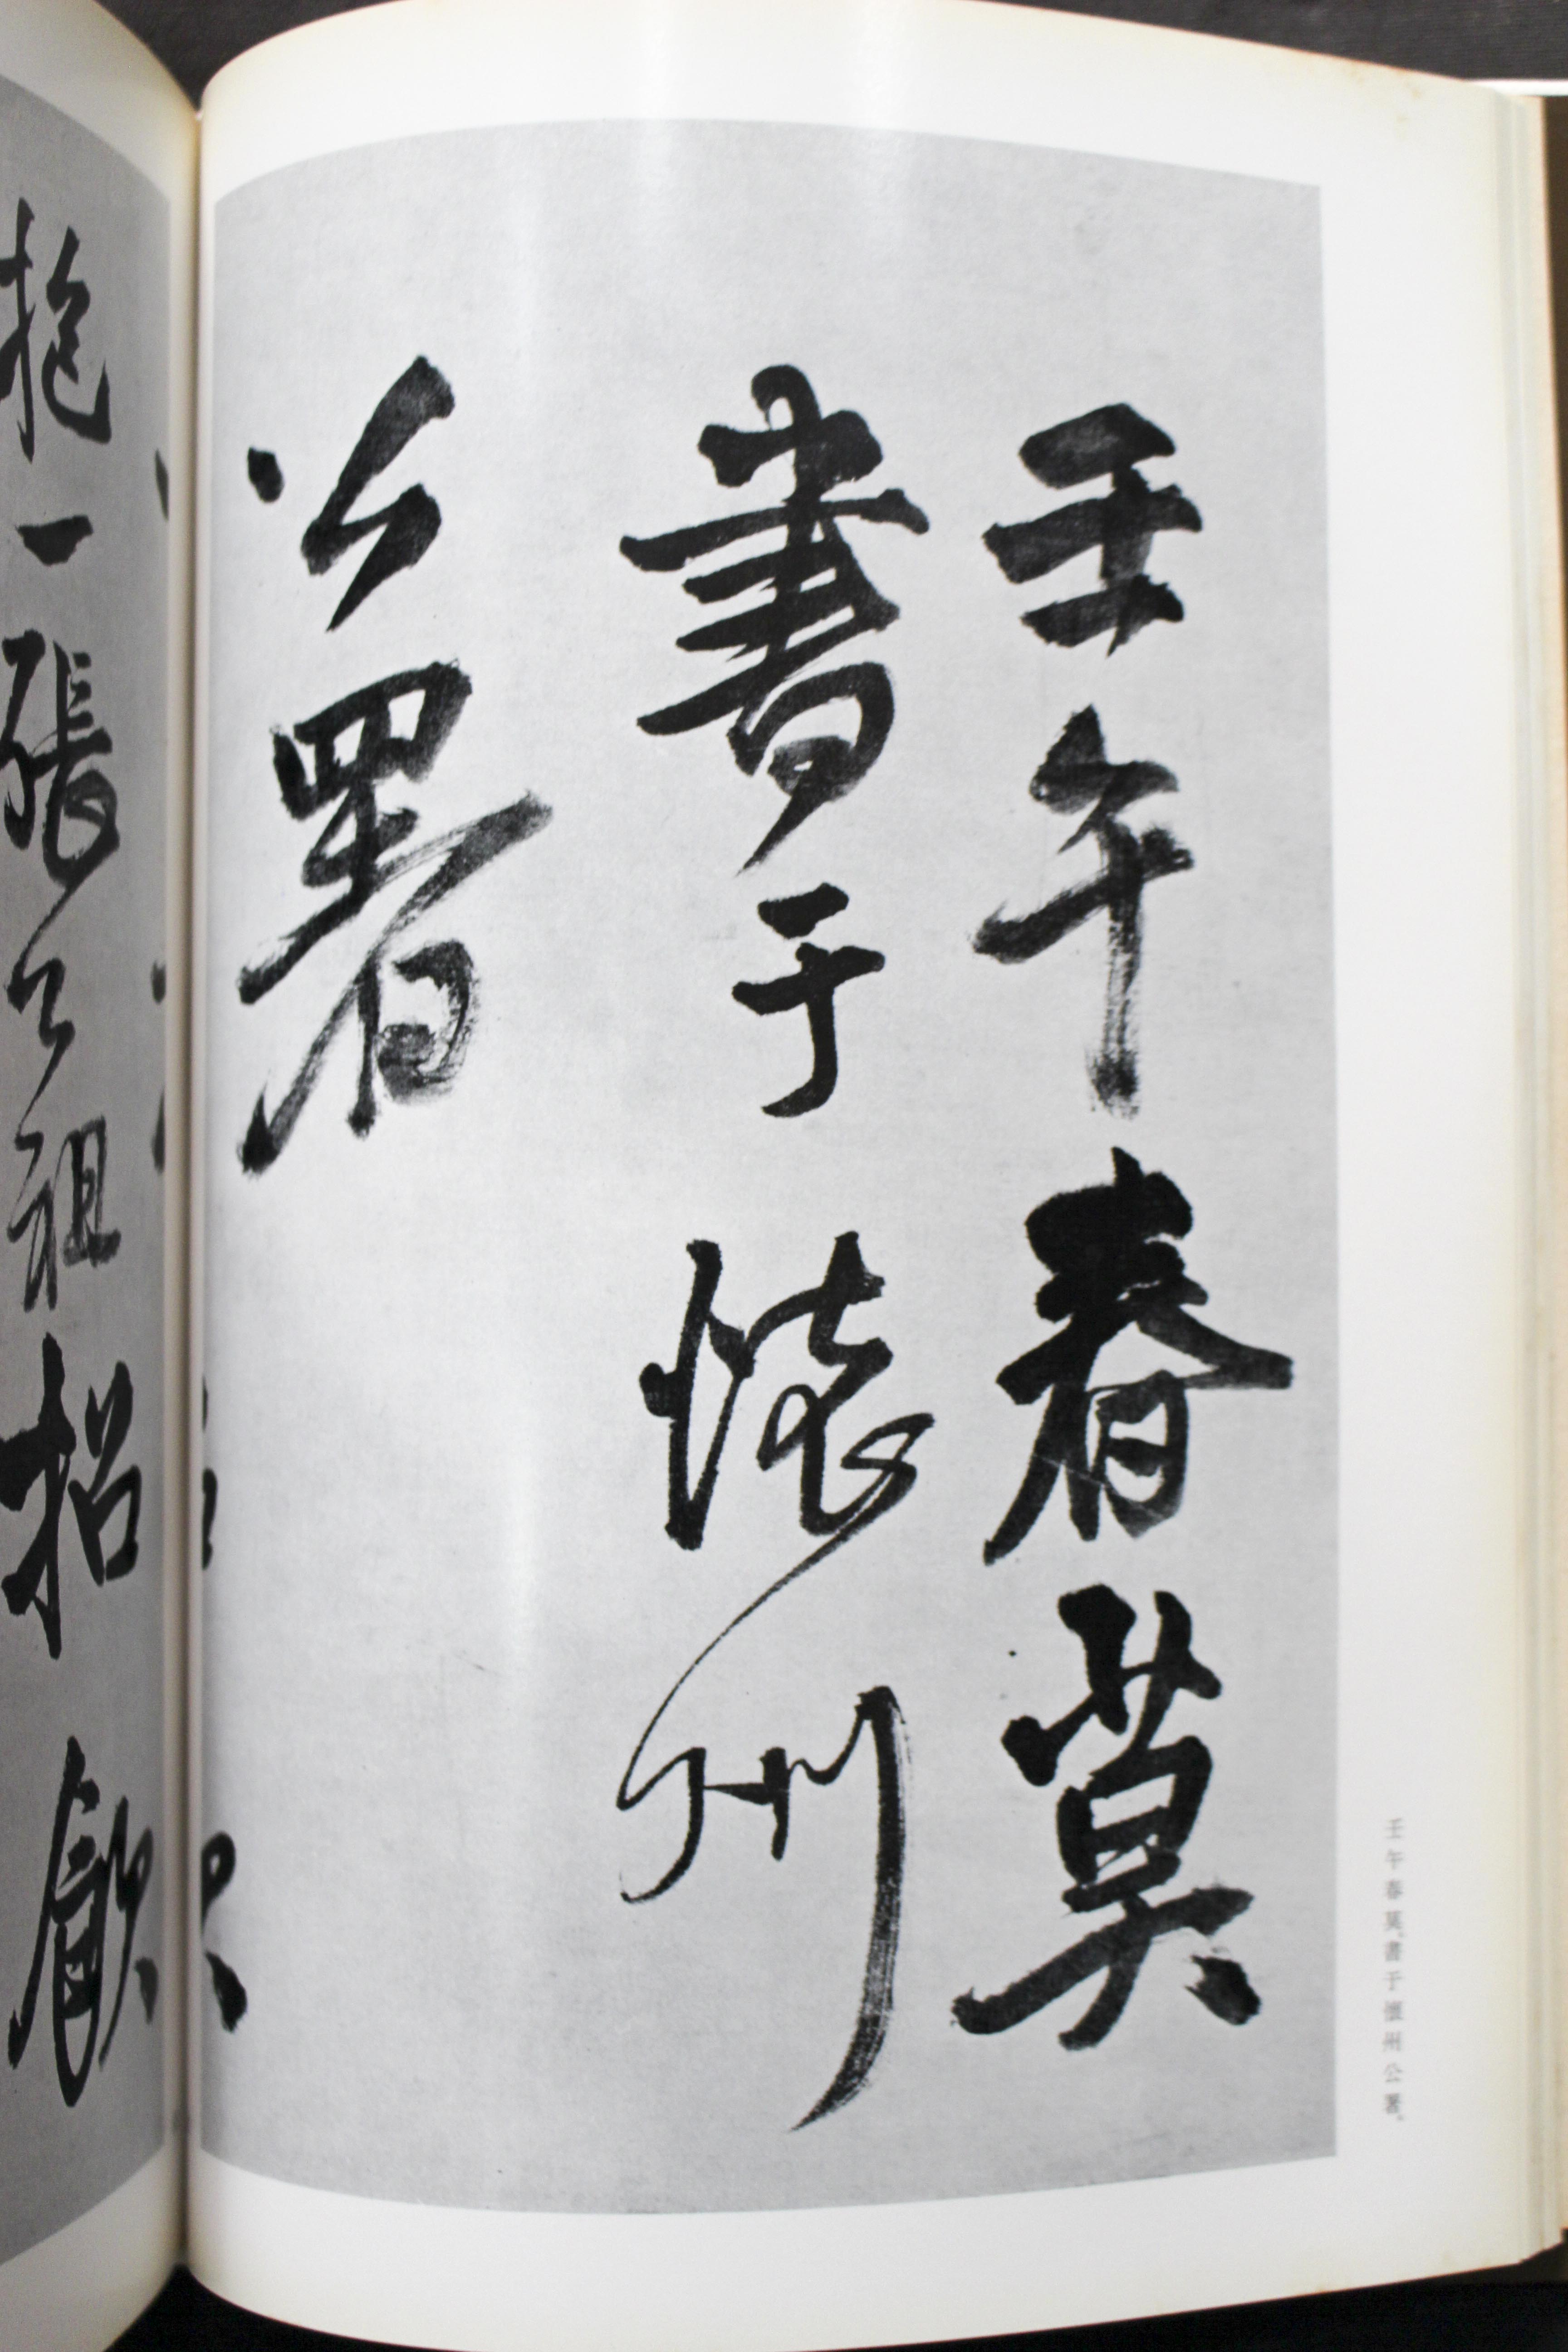 壬午春莫
書于懷州
公署
壬午春莫、書于懷州公署。
抱一張公祖招飲